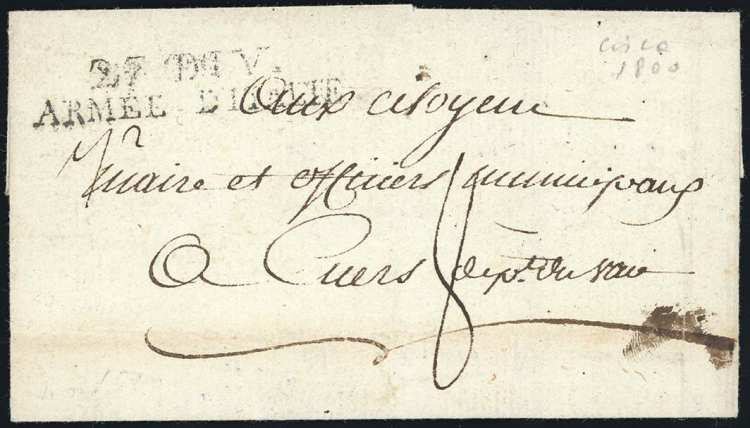 circa
1800
27 DIV.
ARMÉE D'ITALIE
Aux citoyens
maire et officiers municipaux
A Cuers dept. du var